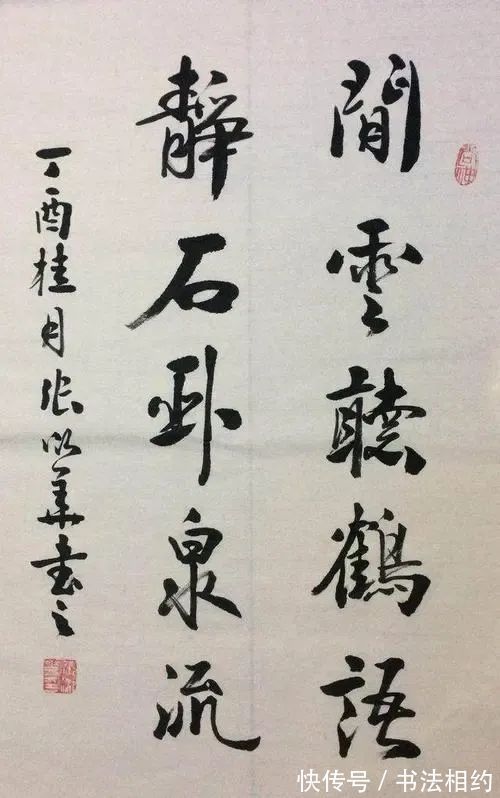 閒雲聽鶴語
靜石卧泉流
丁酉桂月张華书之
快传号/书法相约